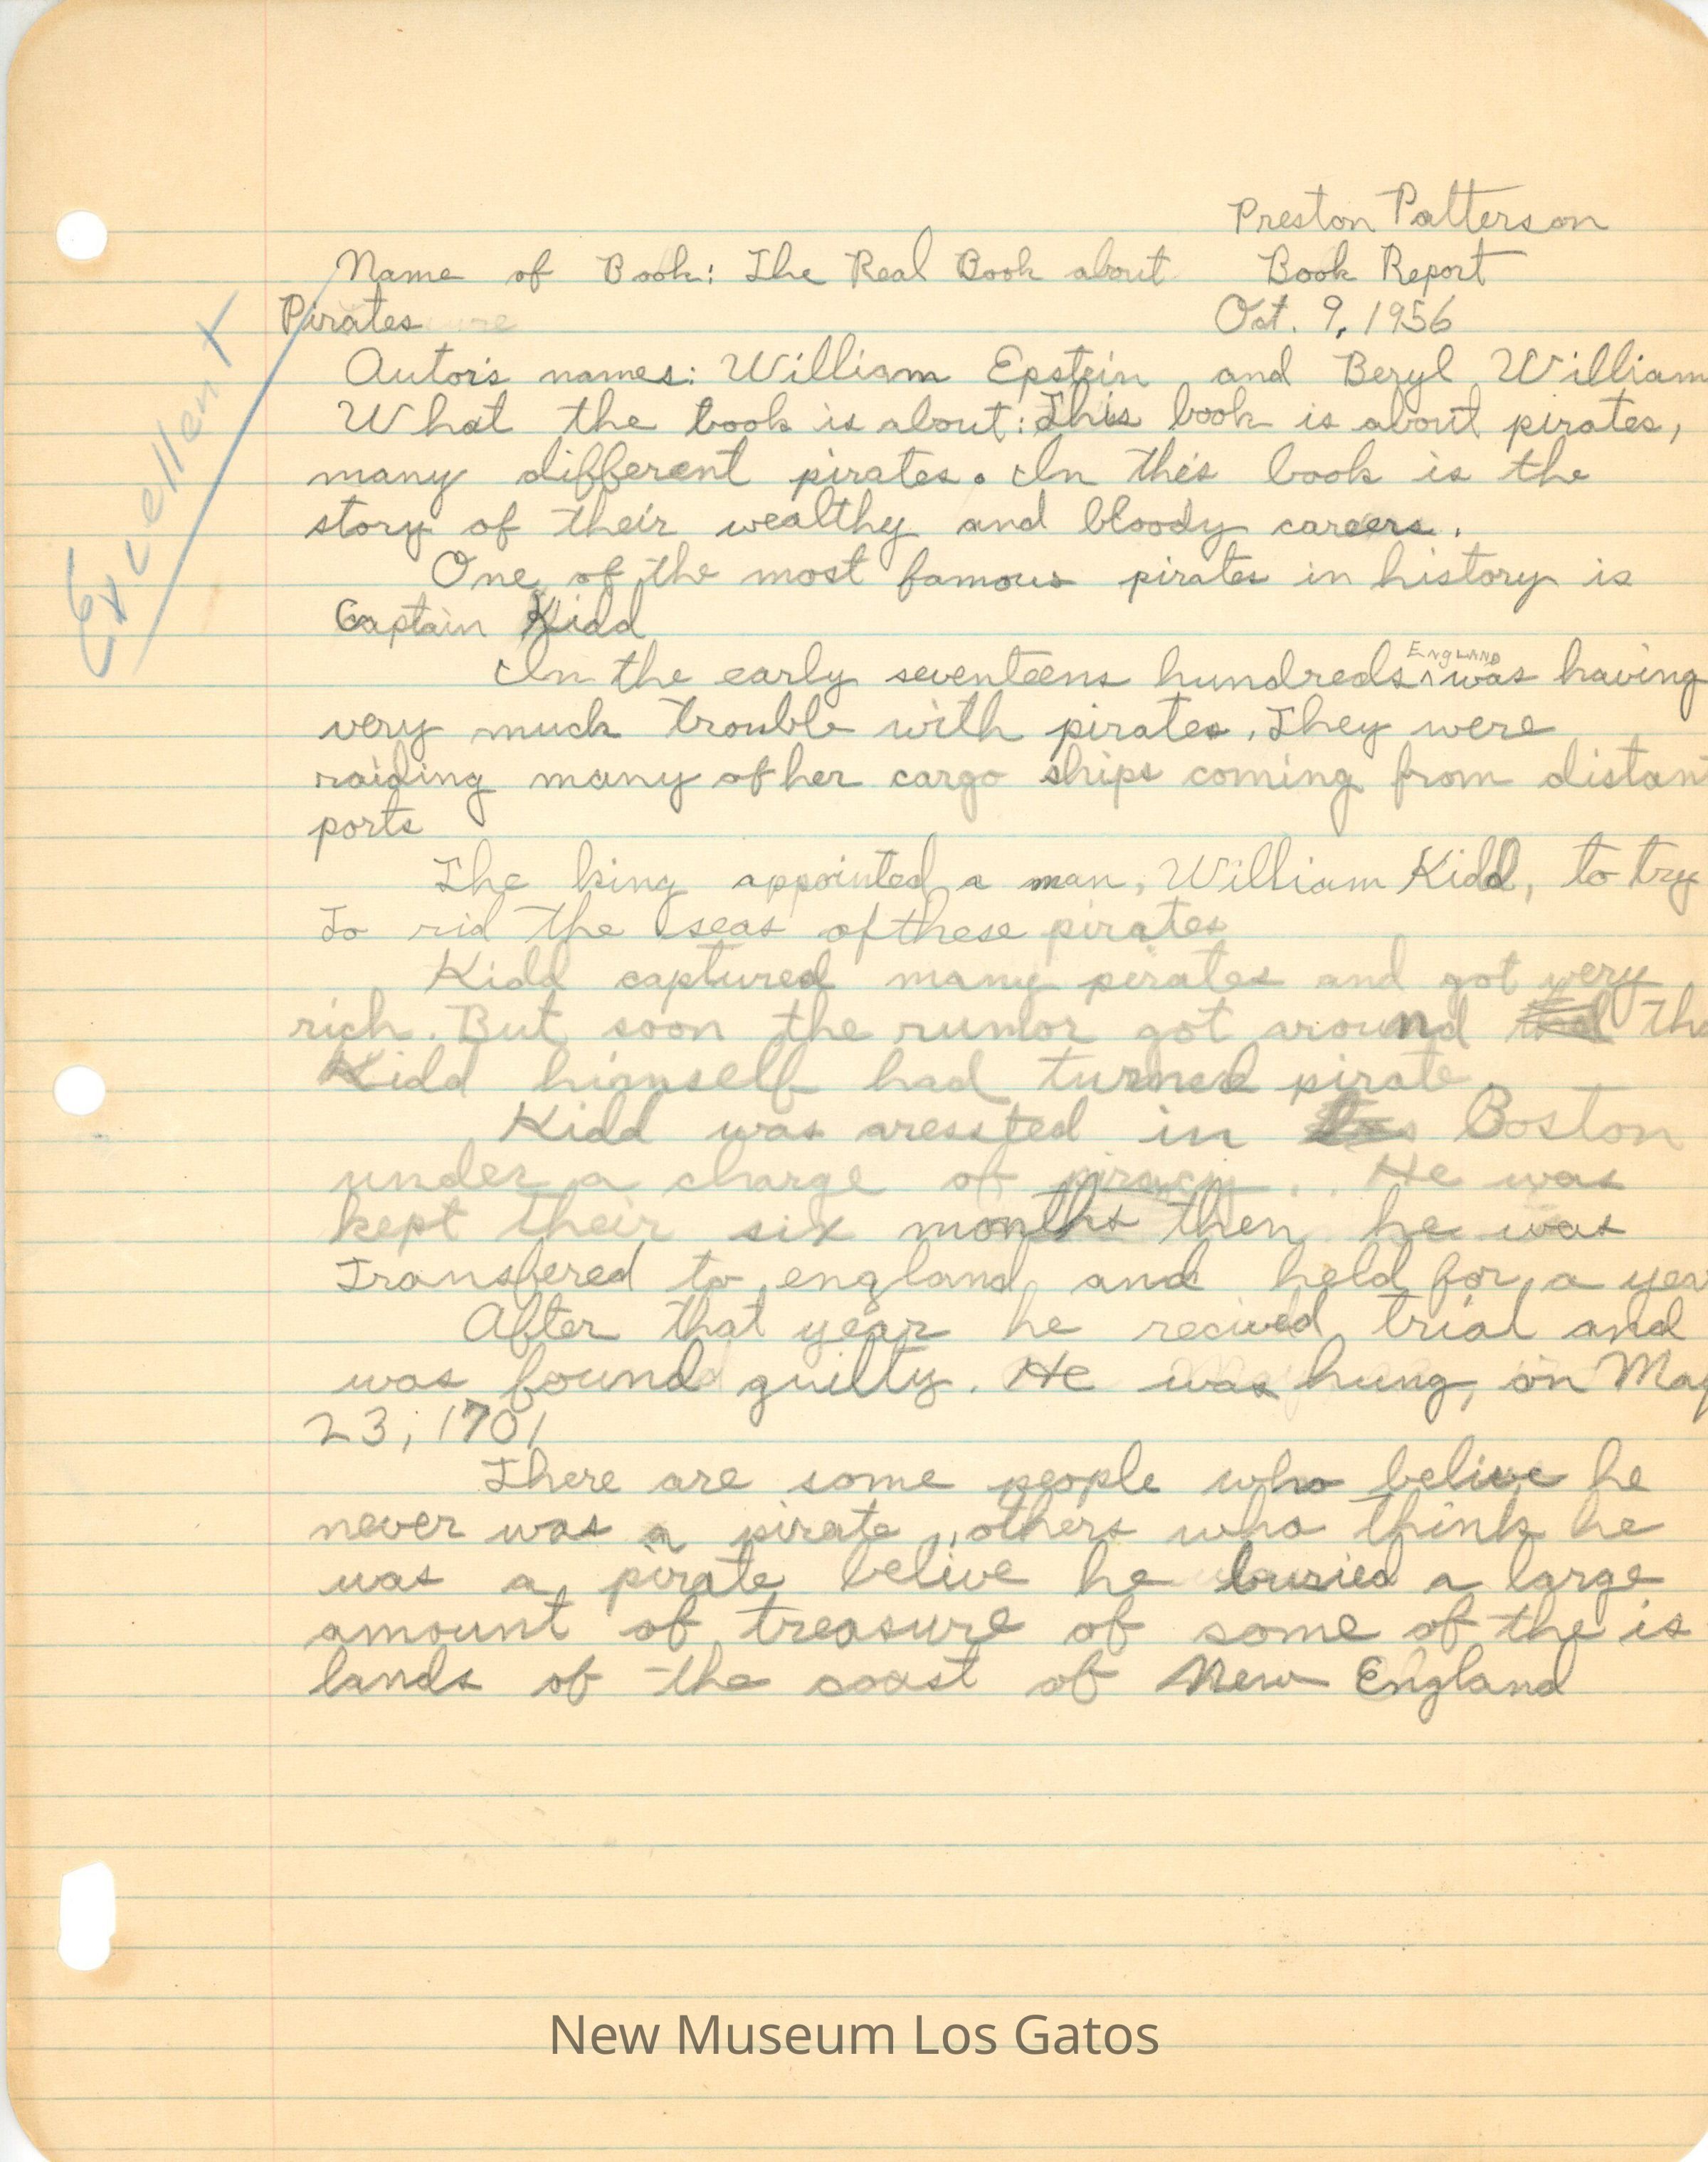 Preston Patterson
Name of Book: The Real Book about Book Report
Pirates Oct. 9, 1956
Excellent
Autors names: William Epstein and Beryl William
What the book is about: This book is about pirates,
many different pirates. In this book is the
story of their wealthy and bloody careers.
One of the most famous pirates in history is
Captain Kidd
In the early seventeens hundreds ENgLAND was having
very much trouble with pirates. They were
raiding many of her cargo ships coming from distant
ports
The king appointed a man, William Kidd, to try
To rid the seas of these pirates
Kidd captured many pirates and got very
rich. But soon the rumor got around tha
Kidd himself had turned pirate
Kidd was aressted in Boston
under a charge of piracy. He was
kept their six months then he was
Transfered to england and held for a year
After that year he recived trial and
was found guilty. He was hung, on May
23, 1701
There are some people who belive he
never was a pirate, others who think he
was a pirate belive he buried a large
amount of treasure of some of the is
lands of the coast of New England
New Museum Los Gatos